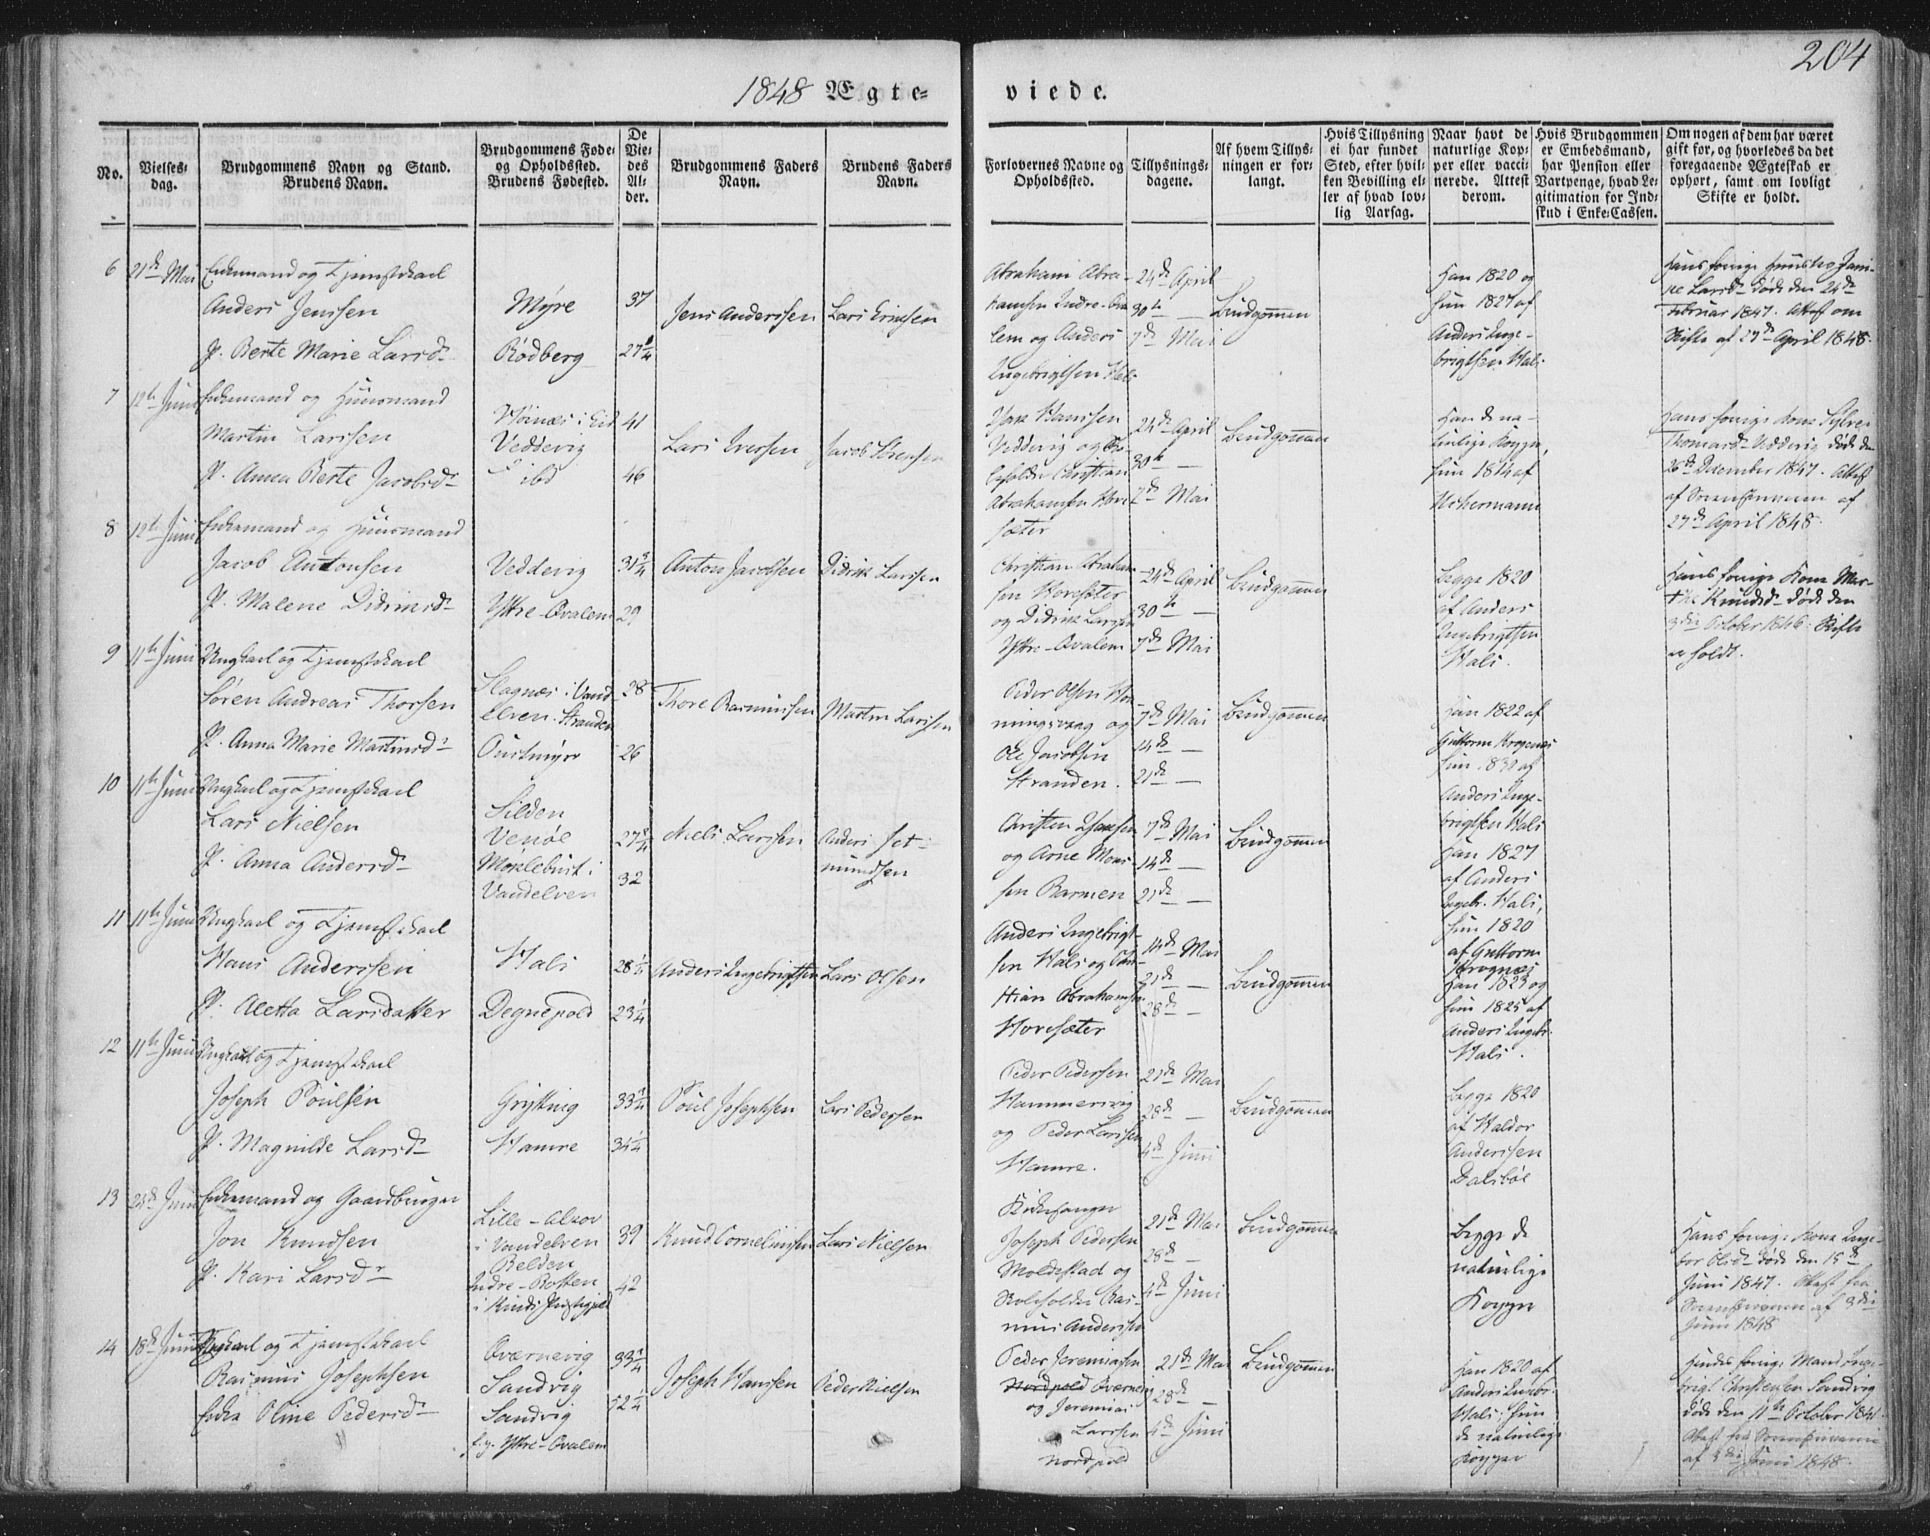 204
1848 Ægte-
viede.
No.
Vielses-
dag.
Brudgommens Navn og Stand.
Brudens Navn.
Brudgommens Føde-
og Opholdssted.
Brudens Fødested.
De
Vie-
des
Al-
der.
Brudgommens Faders
Navn.
Brudens Faders
Navn.
Forlovernes Navne og
Opholdssted.
Tillysnings-
dagene.
Af hvem Tillys-
ningen er for-
langt.
Hvis Tillysning
ei har fundet
Sted, efter hvil-
ken Bevilling el-
ler af hvad lov-
lig Aarsag.
Naar havt de
naturlige Kop-
per eller vacci-
nerede. Attest
derom.
Hvis Brudgommen
er Embedsmand,
har Pension eller
Vartpenge, hvad Le-
gitimation for Ind-
skud i Enke-Cassen.
Om nogen af dem har været
gift før, og hvorledes da det
foregaaende Ægteskab er
ophørt, samt om lovligt
Skifte er holdt.
6
21de Mai
Enkemand og Tjenestekarl
Anders Jenssen
P. Berte Marie Larsdr
Myre
Rødberg
37
27¼
Jens Anderssen
Lars Ericksen
Abraham Abra-
hamsen Indre-
lem og Anders
Ingebrigtsen Hals
24de April
30te —
7de Mai
Brudgommen
Han 1820 og
hun 1827 af
Anders Inge-
brigtsen Hals
Hans forrige Hustro Jani-
ne Larsdr døde den 24de
Februar 1847. Attest om
Skifte af 27de April 1848.
7
12te Juni
Enkemand og Huusmand
Martin Larssen
P. Anna Berte Jacobsdr
Høinæs i Eid
Veddevig
ibd
41
46
Lars Iverssen
Jacob Sørensen
Hanssen
Veddevig og
Christian
Abrahamsen Hore-
sæter
24de April
30te —
7de Mai
Brudgommen
Han de na-
turlige Kopper,
hun 1814 af
Uchermann
Hans forrige Kone Sylvei
Thomasdr Veddevig døde den
26de December 1847. Attest
af Sorenskriveren af
27de April 1848.
8
12te Juni
Enkemand og Huusmand
Jacob Antonsen
P. Malene Didriksdr
Veddevig
Yttre-Ovalem
31¾
29
Anton Jacobsen
Didrik Larssen
Christian Abraham-
sen Horesæter
og Didrik Larssen
Yttre-Ovalem
24de April
30te —
7de Mai
Brudgommen
Begge 1820
af Anders
Ingebrigtsen
Hals.
Hans forrige Kone Mar-
the Knudsdr døde den
3die October 1846. Skifte
er holdt.
9
11te Juni
Ungkarl og Tjenestekarl
Søren Andreas Thorsen
P. Anna Marie Martinsdr
Slagnæs i Vand-
elven. Stranden
Oustmyr
28
26
Thore Rasmussen
Martin Larssen
Peder Olsen Hon-
ningsvaag og
Ole Jacobsen
Stranden.
7de Mai
14de —
21de —
Brudgommen
Han 1822 af
Guttorm Krogenæs
hun 1830 af
Anders Inge-
brigtsen Hals
10
11te Juni
Ungkarl og Tjenestekarl
Lars Nielsen
P. Anna Andersdr
Silden
Venøe
Moklebust i
Vandelven
27¾
32
Niels Larssen
Anders Set-
mundsen
Christen Hanssen
og Arne Mons-
sen Barmen
7de Mai
14de —
21de —
Brudgommen
Han 1827
af Anders
Ingebr. Hals,
hun 1820
af Guttorm
Krognæs
11
11te Juni
Ungkarl og Tjenestekarl
Hans Anderssen
P. Aletta Larsdatter
Hals
Degnepold
28¼
23¼
Anders Ingebrigtsen
Lars Olsen
Anders Ingebrigt-
sen Hals og Chri-
stian Abrahamsen
Horesæter
14de Mai
21de —
28de —
Brudgommen
Han 1823 og
hun 1825 af
Anders Ingebr.
Hals.
12
11te Juni
Ungkarl og Tjenestekarl
Joseph Poulsen
P. Magnilde Larsdr
Grytting
Hamre
33¾
34¼
Poul Josephsen
Lars Pedersen
Peder Pedersen
Hammersvig
og Peder Larssen
Hamre.
21de Mai
28de —
4de Juni
Brudgommen
Begge 1820
af Haldor
Anderssen
Dalsbøe
13
24de Juni
Enkemand og Gaardbruger
Jon Knudsen
P. Kari Larsdr
Lille-Alsov
i Vandelven
Belden
Indre-Botten
i Kinds Præstegjeld
39
42
Knud Corneliussen
Lars Nielsen
Kirkesanger
Joseph Pedersen
Moldestad og
Ras-
mus Anderssen
21de Mai
28de —
4de Juni
Brudgommen
Begge de
naturlige
Kopper
Hans forrige Kone Inge-
bor Olsdr døde den 15de
Juni 1847. Attest fra
Sorenskriveren af 3die
Juni 1848
14
18de Juni
Ungkarl og Tjenestekarl
Rasmus Josephsen
Enke Oline Pedersdr
Oværnevig
Sandvig
Sandvig
f. p. Yttre-Ovalem
33¼
52¼
Joseph Hanssen
Peder Nielsen
Peder Jeremiassen
Nordpold Overnevig
og Jeremias
Larssen
Nordpold
21de Mai
28de —
4de Juni
Brudgommen
Han 1820 af
Anders Ingebr.
Hals; hun
de naturlige
Kopper
Hendes forrige Mand Inge-
brigt Christensen Sandvig
døde den 11te October 184
Attest fra Sorenskriveren
af 3die Juni 1848.